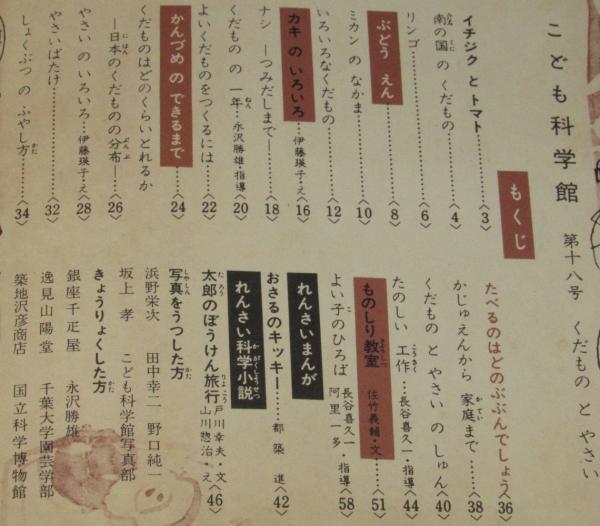 こども科学館 第十八号 くだもの と やさい
もくじ
イチジク と トマト………〈3〉
南の国 の くだもの………〈4〉
リンゴ………〈6〉
ぶどう えん………〈8〉
ミカン の なかま………〈10〉
いろいろなくだもの………〈12〉
カキ の いろいろ…伊藤瑛子・え〈16〉
ナシ ―つみだしまで―………〈18〉
くだもの の 一年…永沢勝雄・指導〈20〉
よいくだものをつくるには………〈22〉
かんづめ の できるまで………〈24〉
くだものはどのくらいとれるか
―日本のくだものの分布―………〈26〉
やさい の いろいろ…伊藤瑛子・え〈28〉
やさいばたけ………〈32〉
しょくぶつ の ふやし方………〈34〉
たべるのはどのぶぶんでしょう〈36〉
かじゅえんから 家庭まで………〈38〉
くだもの と やさい の しゅん〈40〉
たのしい 工作…長谷喜久一・指導〈44〉
ものしり教室 佐竹義輔・文………〈51〉
よい子のひろば 長谷喜久一・指導 阿里一多〈58〉
れんさいまんが
おさるのキッキー………都築 進〈42〉
れんさい科学小説
太郎のぼうけん旅行 戸川幸夫・文 山川惣治・え〈46〉
写真をうつした方
浜野栄次 田中幸二 野口純一
坂上 孝 こども科学館写真部
きょうりょくした方
銀座千疋屋 永沢勝雄
逸見山陽堂 千葉大学園芸学部
築地沢彦商店 国立科学博物館